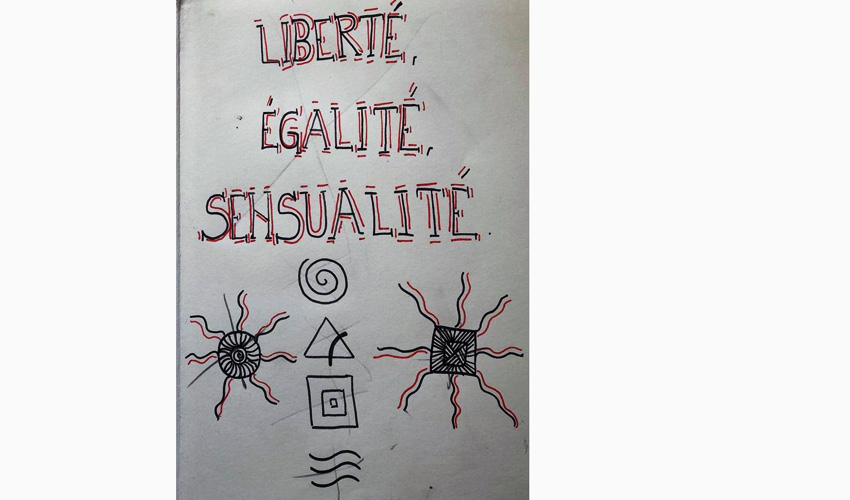 LIBERTÉ,
ÉGALITÉ,
SENSUALITÉ.